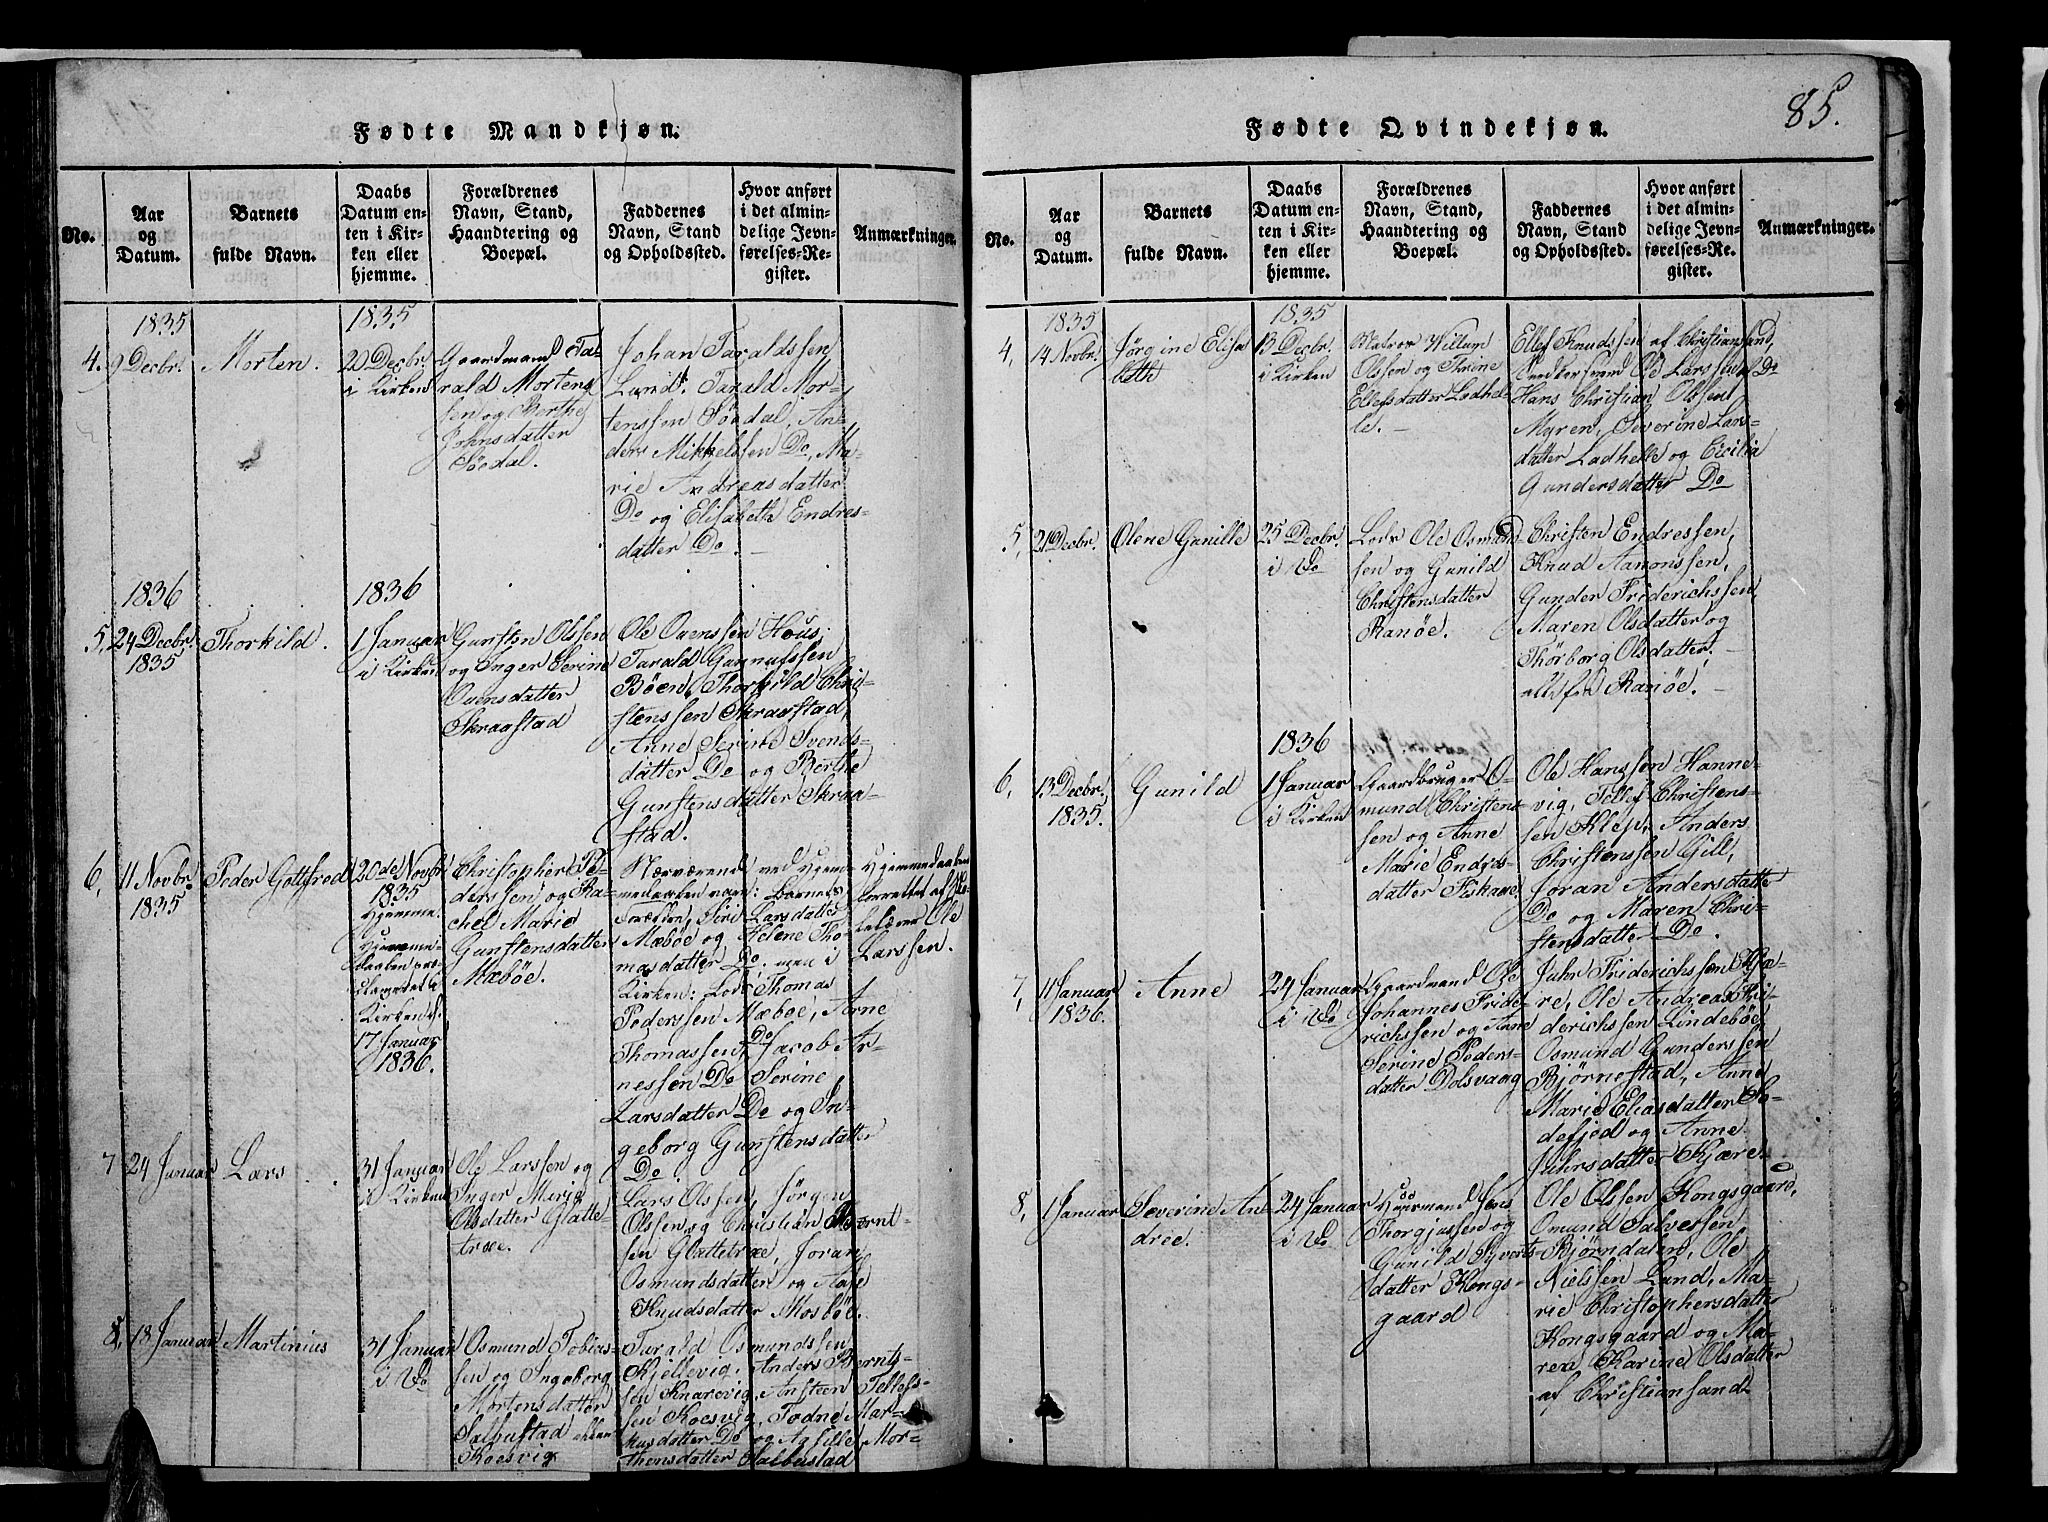 Fødte Mandkjøn.
No.
Aar
og
Datum.
Barnets
fulde Navn.
Daabs
Datum en-
ten i Kir-
ken eller
hjemme.
Forældrenes
Navn, Stand,
Haandtering og
Boepæl.
Faddernes
Navn, Stand
og Opholdssted.
Hvor anført
i det almin-
delige Jevn-
førelses-Re-
gister.
Anmærkninger.
1835
4. 9 Decbr.
Morten.
1835
20 Decbr.
i Kirken
Gaardmand Ta-
rald Mortens
sen og Berthe
Johnsdatter
Söedal.
Johan Taraldssen
Lund, Tarald Mor-
tenssen Söedal, An-
ders Mikkelssen Do, Ma-
rie Andreasdatter
Do og Elisabeth Endres-
datter Do.
1836
5, 24 Decbr.
1835
Thorkild.
1836
1 Januar
i Kirken
Gunsten Olssen
og Inger Serine
Ovensdatter
Skraastad
Ole Ovenssen Hous,
Tarald Gunnufssen
Böen, Thorkild Chri-
stenssen Skraastad,
Anne Serine Svends-
datter Do og Berthe
Gunstensdatter Skraa-
stad.
6, 11 Novbr.
1835
Peder Gottfred
20de Novbr.
1835
Hjemme.
Hjemme-
daaben pro-
clameret i
Kirken d.
17 Januar
1836.
Christopher Pe-
derssen og Ra-
chel Marie
Gunstensdatter
Mæböe.
Nærværend ved Hjem-
medaaben vare: Barnets
Forældre, Siri Larsdatter
Mæböe og Helene Tho-
masdatter Do. men i
Kirken: Lods Thomas
Pederssen Mæböe, Arne
Thomassen Do, Jacob Ar-
nessen Do Serine
Larsdatter Do og In-
geborg Gunstensdatter
Do.
Hjemmedaaben
forrettet af
Ole
Larssen.
7 24 Januar
Lars
31 Januar
i Kirken
Ole Larssen og
Inger Marie
Olsdatter Glatte-
træe.
Lars Olssen, Jörgen
Olssen og Christian Bernt-
sen Glattetræe, Joran
Osmundsdatter og Aase
Knudsdatter Mosböe.
8, 18 Januar
Martinius
31 Januar
i Do
Osmund Tobias-
sen og Ingeborg
Mortensdatter
Salbustad
Koesvig
Tarald Osmundssen
Kjellevig, Anders Bernt-
sen Knarevig, Ansteen Tellefs-
sen Koesvig, Todne Mar-
kusdatter Do og Asille Mor-
thensdatter Salbustad
85.
Fødte Qvindekjøn.
No.
Aar
og
Datum.
Barnets
fulde Navn.
Daabs
Datum en-
ten i Kir-
ken eller
hjemme.
Forældrenes
Navn, Stand,
Haandtering og
Boepæl.
Faddernes
Navn, Stand
og Opholdssted.
Hvor anført
i det almin-
delige Jevn-
førelses-Re-
gister.
Anmærkninger.
1835
4, 14 Novbr.
Jørgine Elisa
beth
1835
13 Decbr.
i Kirken
Matros Willum
Olssen og Thrine
Ellefsdatter Ladhel-
le.
Ellef Knudssen af Christiansand,
Ole Larssen Do
Hans Christian Olssen
Myren, Severine Lars-
datter Ladhelle og Cicilia
Gundersdatter Do
5, 21 Decbr.
Olene Gunille
25 Decbr.
i Do
Lods Ole Osmund-
sen og Gunild
Christensdatter
Ranöe.
Christen Endressen,
Knud Aanonssen,
Gunder Friderichssen,
Maren Olsdatter og
Thörborg Olsdatter,
alle fra Ranöe.
6, 13 Decbr.
1835.
Gunild
1836
1 Januar
i Kirken
Gaardbruger O-
mund Christens-
sen og Anne
Marie Endrds-
datter Fiskaae
Ole Hanssen Hanne-
vig, Tellef Christens-
sen Klep, Anders
Christenssen Gill,
Joran Andersdatter
Do og Maren Chri-
stensdatter Do.
7, 11 Januar
1836.
Anne
24 Januar
i Do
Gaardmand Ole
Johannes Fride-
richssen og Anne
Serine Peders-
datter Dolsvaag
Juhr Friderichssen Kjæ-
re, Ole Andreas Fri-
derichssen Lindeböe,
Osmund Gunderssen
Bjørnestad, Anne
Marie Eliasdatter
defjed og Anne
Juhrsdatter Kjære.
8, 1 Januar
Severine An-
dree.
24 Januar
i Do
Huusmand Jens
Thorgjussen og
Gunild Syverts-
datter Kongs-
gaard
Ole Olssen Kongsgaard,
Omund Salvessen
Bjørndalen, Ole
Nielssen Lund, Ma-
rie Christophersdatter
Kongsgaard og Ma-
ren Karine Olsdatter
af Christiansand.